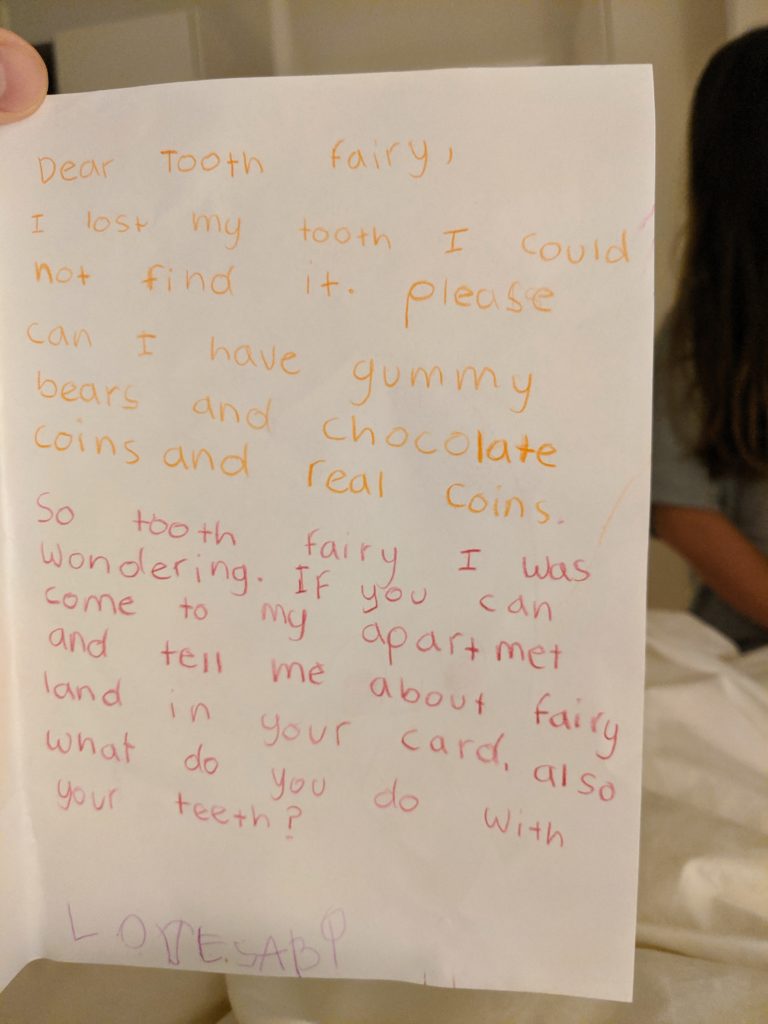 Dear Tooth fairy,
I lost my tooth I could
not find it. please
can I have gummy
bears and chocolate
coins and real coins.
So tooth fairy I was
wondering. If you can
come to my apartmet
and tell me about fairy
land in your card, also
what do you do with
your teeth?
LOVE SABI